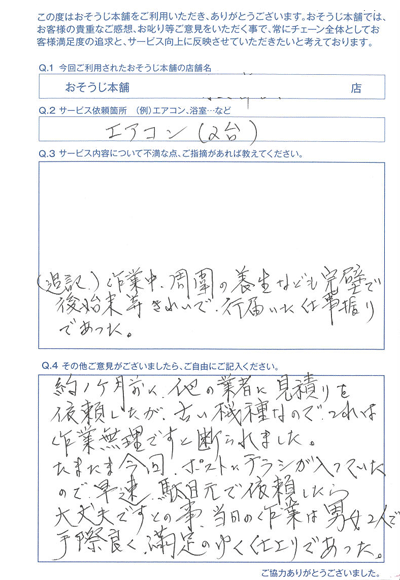 この度はおそうじ本舗をご利用いただき、ありがとうございます。おそうじ本舗では、
お客様の貴重なご感想、お叱り等ご意見をいただく事で、常にチェーン全体としてお
客様満足度の追求と、サービス向上に反映させていただきたいと考えております。
Q.1 今回ご利用されたおそうじ本舗の店舗名
おそうじ本舗 店
Q.2 サービス依頼箇所 (例)エアコン、浴室…など
エアコン(2台)
Q.3 サービス内容について不満な点、ご指摘があれば教えてください。
(追記)作業中、周囲の養生なども完璧で
後始末等きれいで、行届いた仕事振り
であった。
Q.4 その他ご意見がございましたら、ご自由にご記入ください。
約1ヶ月前く、他の業者に見積りを
依頼したが、古い機種なので、これは
作業無理ですと断られました。
たまたま今回、ポストにチラシが入っていた
ので、早速、駄目元で依頼したら
大丈夫ですとの事、当日の作業は男女2人で
手際良く、満足のゆく仕上りであった。
ご協力ありがとうございました。